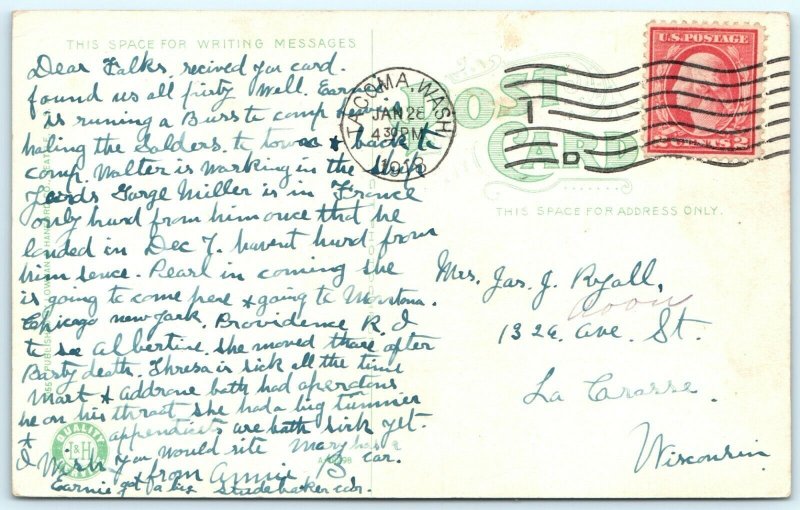 THIS SPACE FOR WRITING MESSAGES
Dear Falks, recived you card.
found us all pirty well. Earnie
is runing a Buss to comp
haling the Solders. to town & back to
comp. Walter is Warking in the Ship
Yards Gorge Miller is in France
only hurd from him once that he
landed in Dec 7. havent hurd from
him sence. Pearl in coming she
is going to come here & going to Montana.
Chicago new yark, Providence R. I
to see Albertine. she moved thare after
Barty death. Thresa is sick all the time
Mart & Addrone bath had aperations
he on his throat she had a big tummer
& appendicits are bath sick yet.
I Wish you would rite Mary has a
from Annie B. car.
Earnie got a big Studebaker car.
TACOMA, WASH.
JAN 28
4 30 PM
1918
U.S. POSTAGE
2 CENTS 2
POST
CARD
THIS SPACE FOR ADDRESS ONLY.
Mrs. Jas. J. Ryall,
1326. Ave. St.
La Crosse.
Wisconsin.
QUALITY
L&H